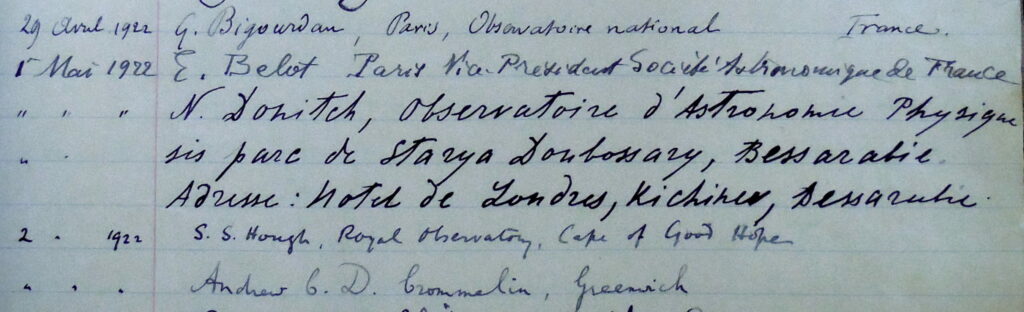 29 Avril 1922 G. Bigourdan, Paris, Observatoire national France.
1 Mai 1922 E. Belot Paris Vice-Président Société Astronomique de France
" " " N. Donitch, Observatoire d'Astronomie Physique
" " sis parc de Starya Doubossary, Bessarabie.
Adresse: Hotel de Londres, Kichinev, Bessarabie.
2 " 1922 S. S. Hough, Royal Observatory, Cape of Good Hope
" " " Andrew C. D. Crommelin, Greenwich